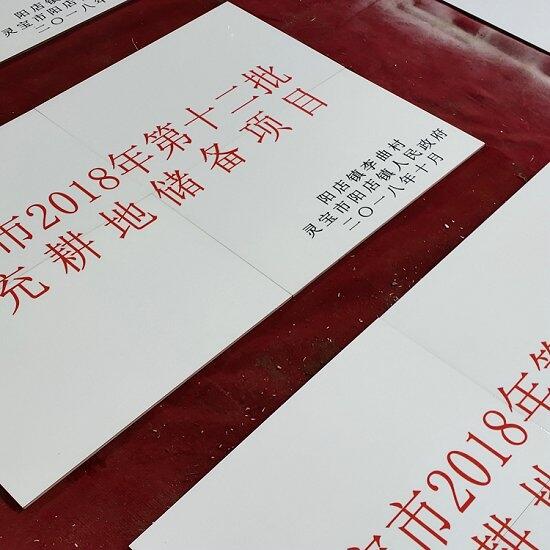 阳店镇
灵宝市阳店镇
二〇一八年
市2018年第十二批
充耕地储备项目
阳店镇李曲村
灵宝市阳店镇人民政府
二〇一八年十月
市2018年第
耕地